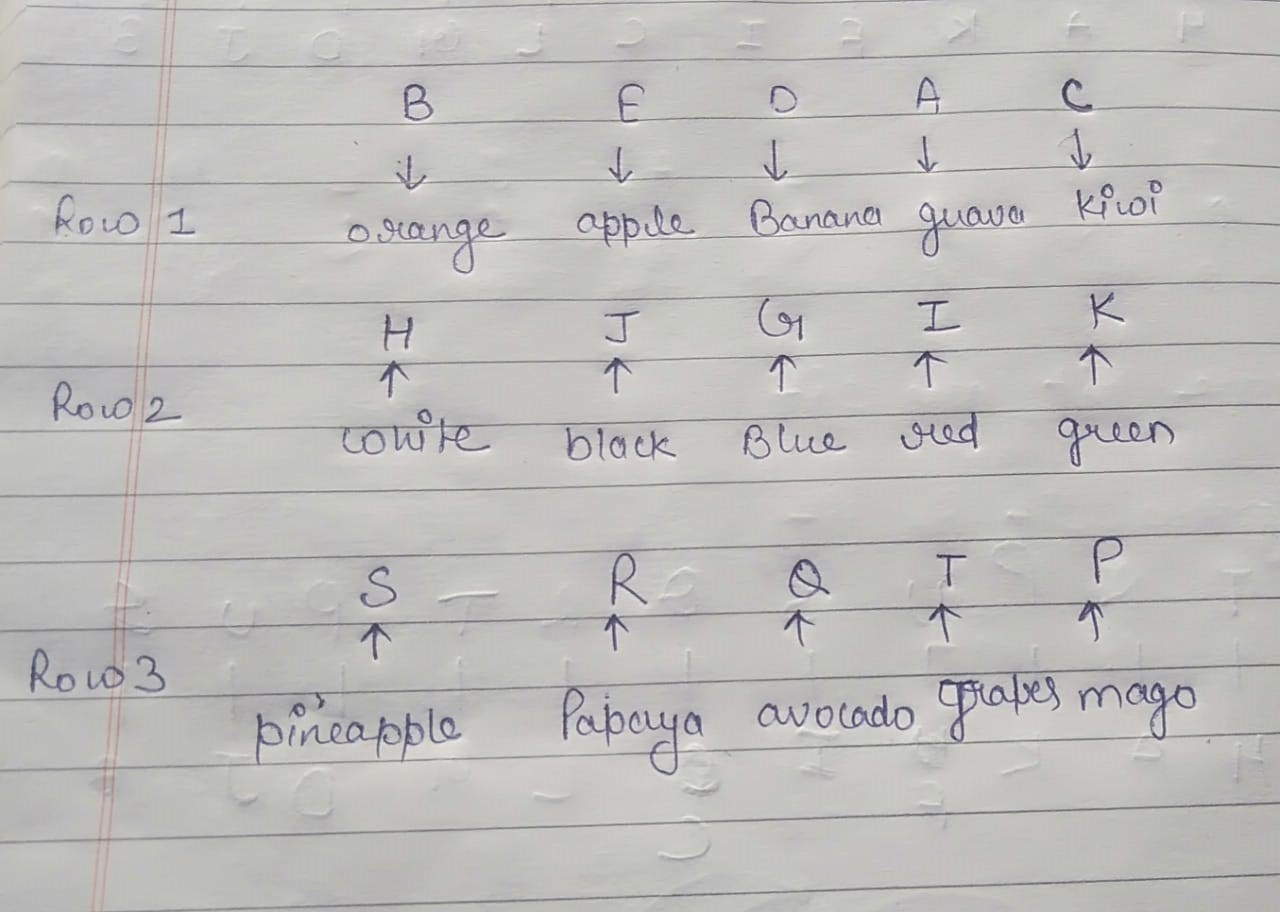 B E D A C
↓ ↓ ↓ ↓ ↓
Row 1 orange apple Banana guava kiwi
H J G I K
↑ ↑ ↑ ↑ ↑
Row 2 white black Blue red green
S R Q T P
↑ ↑ ↑ ↑ ↑
Row 3 pineapple Papaya avocado grapes mago